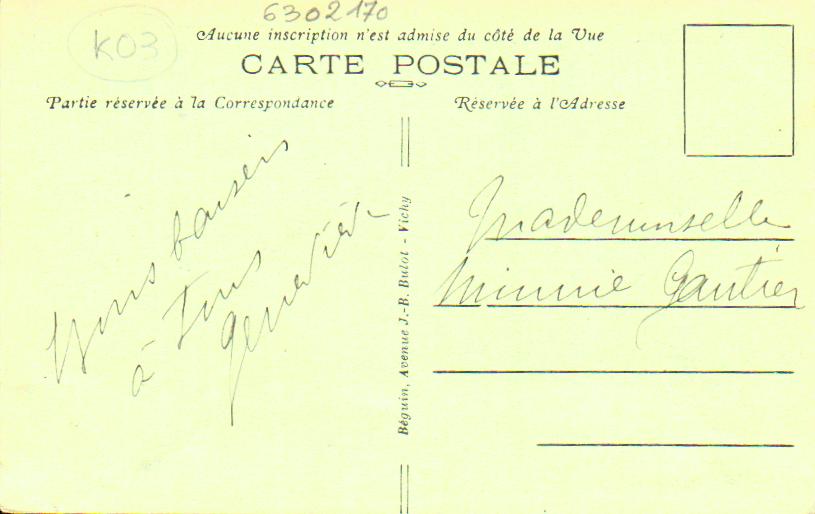 6302170
K03
Aucune inscription n'est admise du côté de la Vue
CARTE POSTALE
Partie réservée à la Correspondance
Réservée à l'Adresse
Bons baisers
à Tous
Geneviève
Béguin, Avenue J.-B. Bulot - Vichy
Mademoiselle
Minnie Gautier